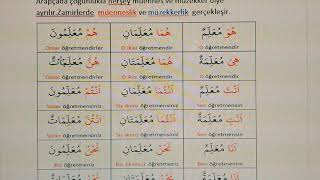 Arapçada çoğunlukla herşey müennes ve müzekker diye
ayrılır.Zamirlerde müenneslik ve müzekkerlik gerçekleşir.
هُمْ مُعَلِّمُونَ هُمَا مُعَلِّمَانِ هُوَ مُعَلِّمٌ
Onlar öğretmendirler O ikisi öğretmendir O öğretmendir
هُنَّ مُعَلِّمَاتٌ هُمَا مُعَلِّمَتَانِ هِيَ مُعَلِّمَةٌ
Onlar öğretmendirler O ikisi öğretmendir O öğretmendir
أَنْتُمْ مُعَلِّمُونَ أَنْتُمَا مُعَلِّمَانِ أَنْتَ مُعَلِّمٌ
Siz öğretmensiniz Siz ikiniz öğretmensiniz Sen öğretmensin
أَنْتُنَّ مُعَلِّمَاتٌ أَنْتُمَا مُعَلِّمَتَانِ أَنْتِ مُعَلِّمَةٌ
Siz öğretmensiniz Siz ikiniz öğretmensiniz Sen öğretmensin
نَحْنُ مُعَلِّمُونَ نَحْنُ مُعَلِّمَانِ أَنَا مُعَلِّمٌ
Biz öğretmeniz Biz öğretmeniz Ben öğretmenim